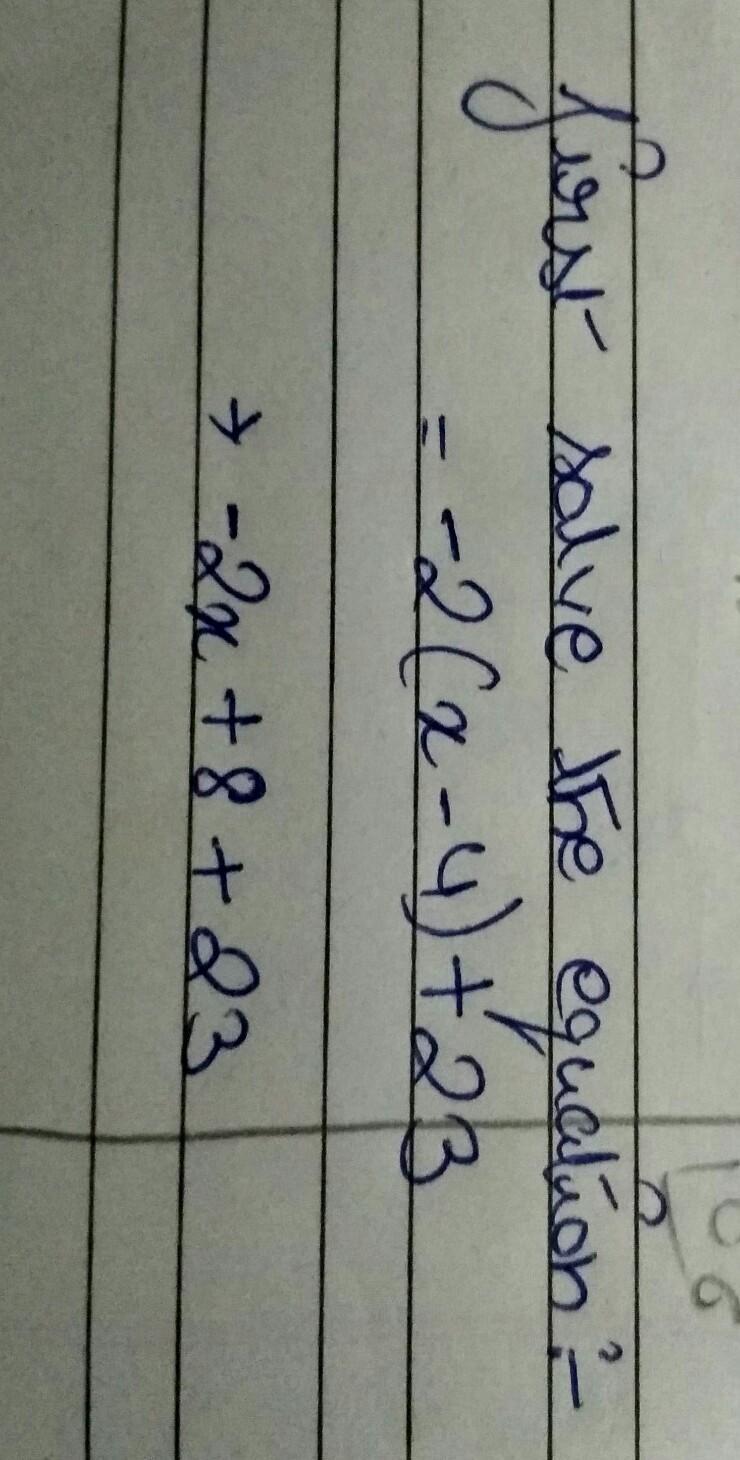 first solve the equation:-
= -2(x-4)+23
→ -2x+8+23